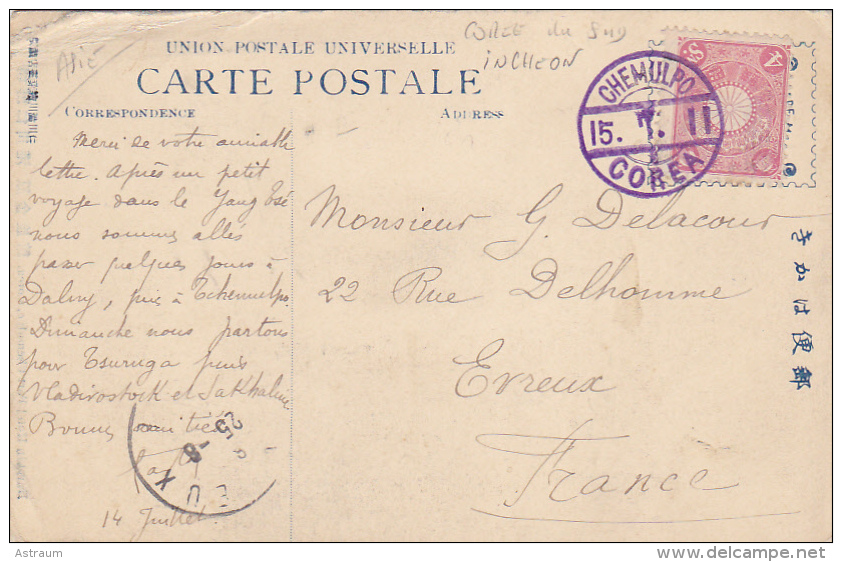 Asie
COREE du SUD
INCHEON
UNION POSTALE UNIVERSELLE
CARTE POSTALE
CORRESPONDENCE
ADDRESS
CHEMULPO
15. 7. 11
COREA
Merci de votre aimable
lettre. Après un petit
voyage dans le Yang Tsé
nous sommes allés
passer quelques jours à
Dalny, puis à Tchemulpo
Dimanche nous partons
pour Tsuruga puis
Vladivostock et Sakhaline
Bonnes amitiés
14 Juillet
Monsieur G. Delacour
22 Rue Delhomme
Evreux
France
きかは便郵
25 -8
EUX
Astraum
delcampe.net